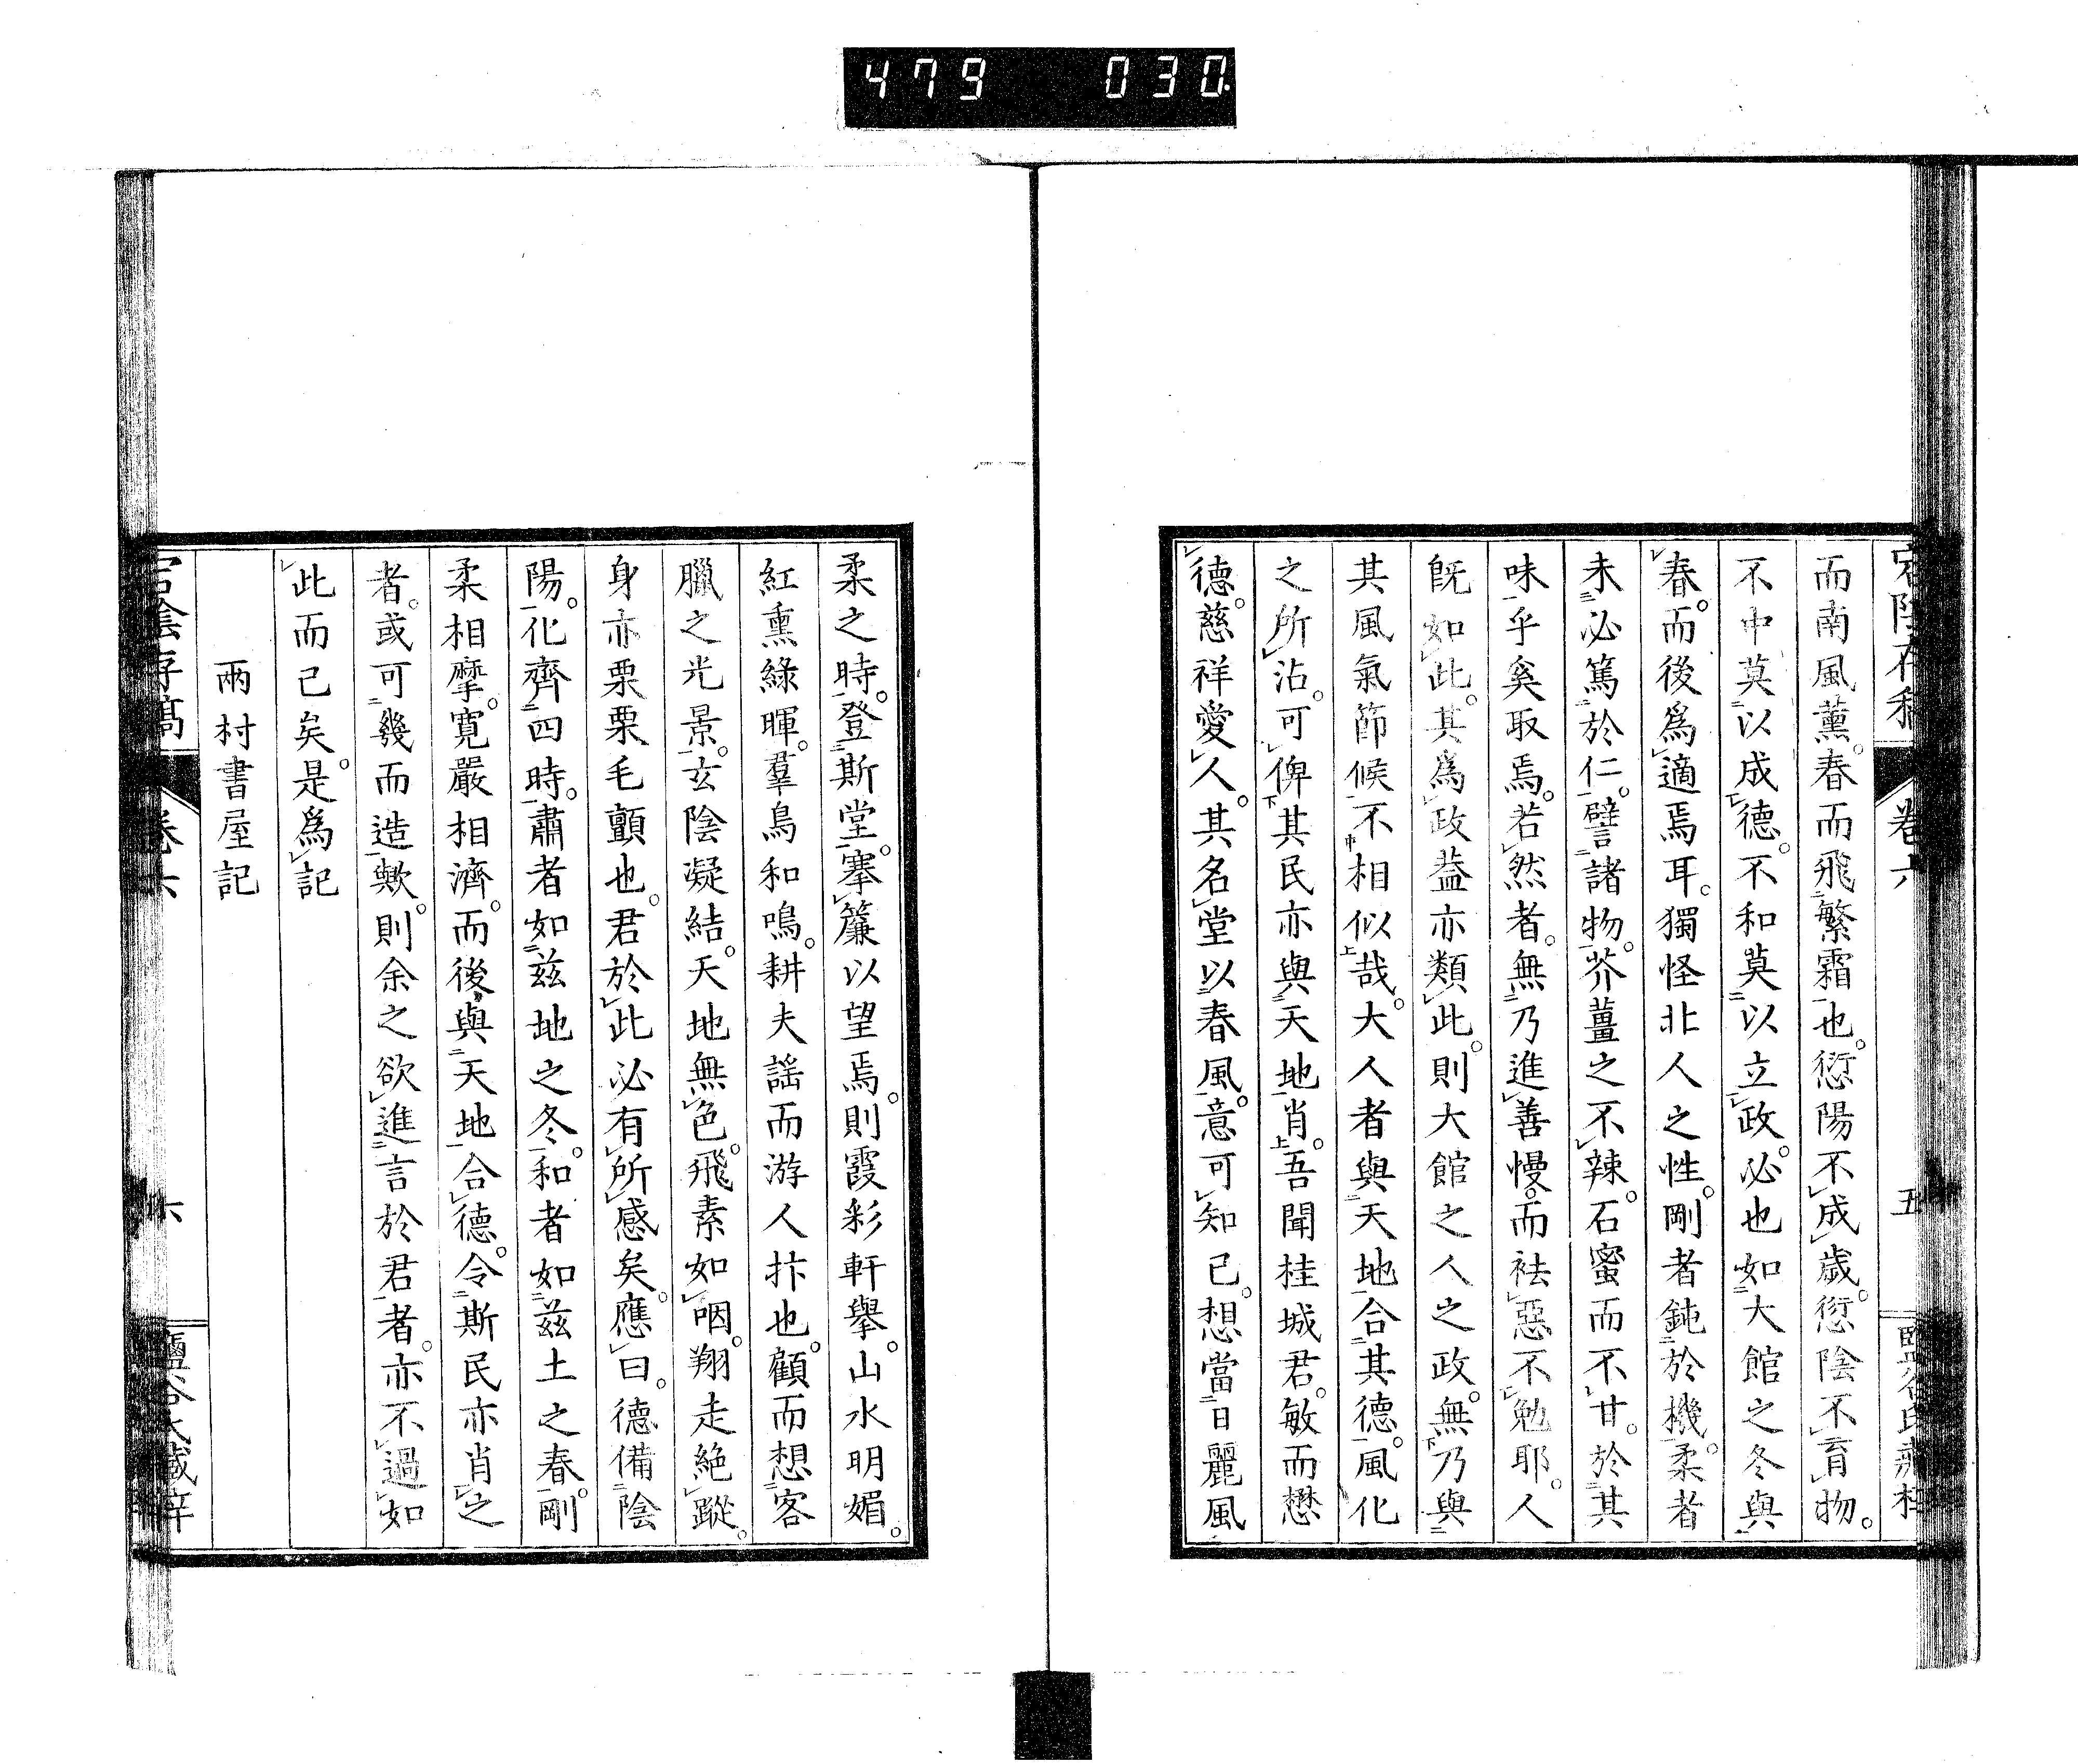 479 030
宕陰存稿 卷六 五
而南風薰。春而飛繁霜也。愆陽不成歲。愆陰不育物。
不中莫以成德。不和莫以立政。必也如大館之冬與
春。而後爲適焉耳。獨怪北人之性。剛者鈍於機。柔者
未必篤於仁。譬諸物。芥薑之不辣。石蜜而不甘。於其
味乎奚取焉。若然者。無乃進善慢。而祛惡不勉耶。人
既如此。其爲政益亦類此。則大館之人之政。無乃與
其風氣節候不相似哉。大人者與天地合其德。風化
之所沾。可俾其民亦與天地肖。吾聞桂城君。敏而懋
德。慈祥愛人。其名堂以春風。意可知已。想當日麗風
柔之時。登斯堂。搴簾以望焉。則霞彩軒擧。山水明媚。
紅熏綠暉。羣鳥和鳴。耕夫謡而游人抃也。顧而想客
臘之光景。玄陰凝結。天地無色。飛素如咽。翔走絶蹤。
身亦栗栗毛顫也。君於此必有所感矣。應曰。德備陰
陽。化齊四時。肅者如茲地之冬。和者如茲土之春。剛
柔相摩。寬嚴相濟。而後與天地合德。令斯民亦肖之
者。或可幾而造歟。則余之欲進言於君者。亦不過如
此而已矣。是爲記
兩村書屋記
宕陰存稿 卷六 六